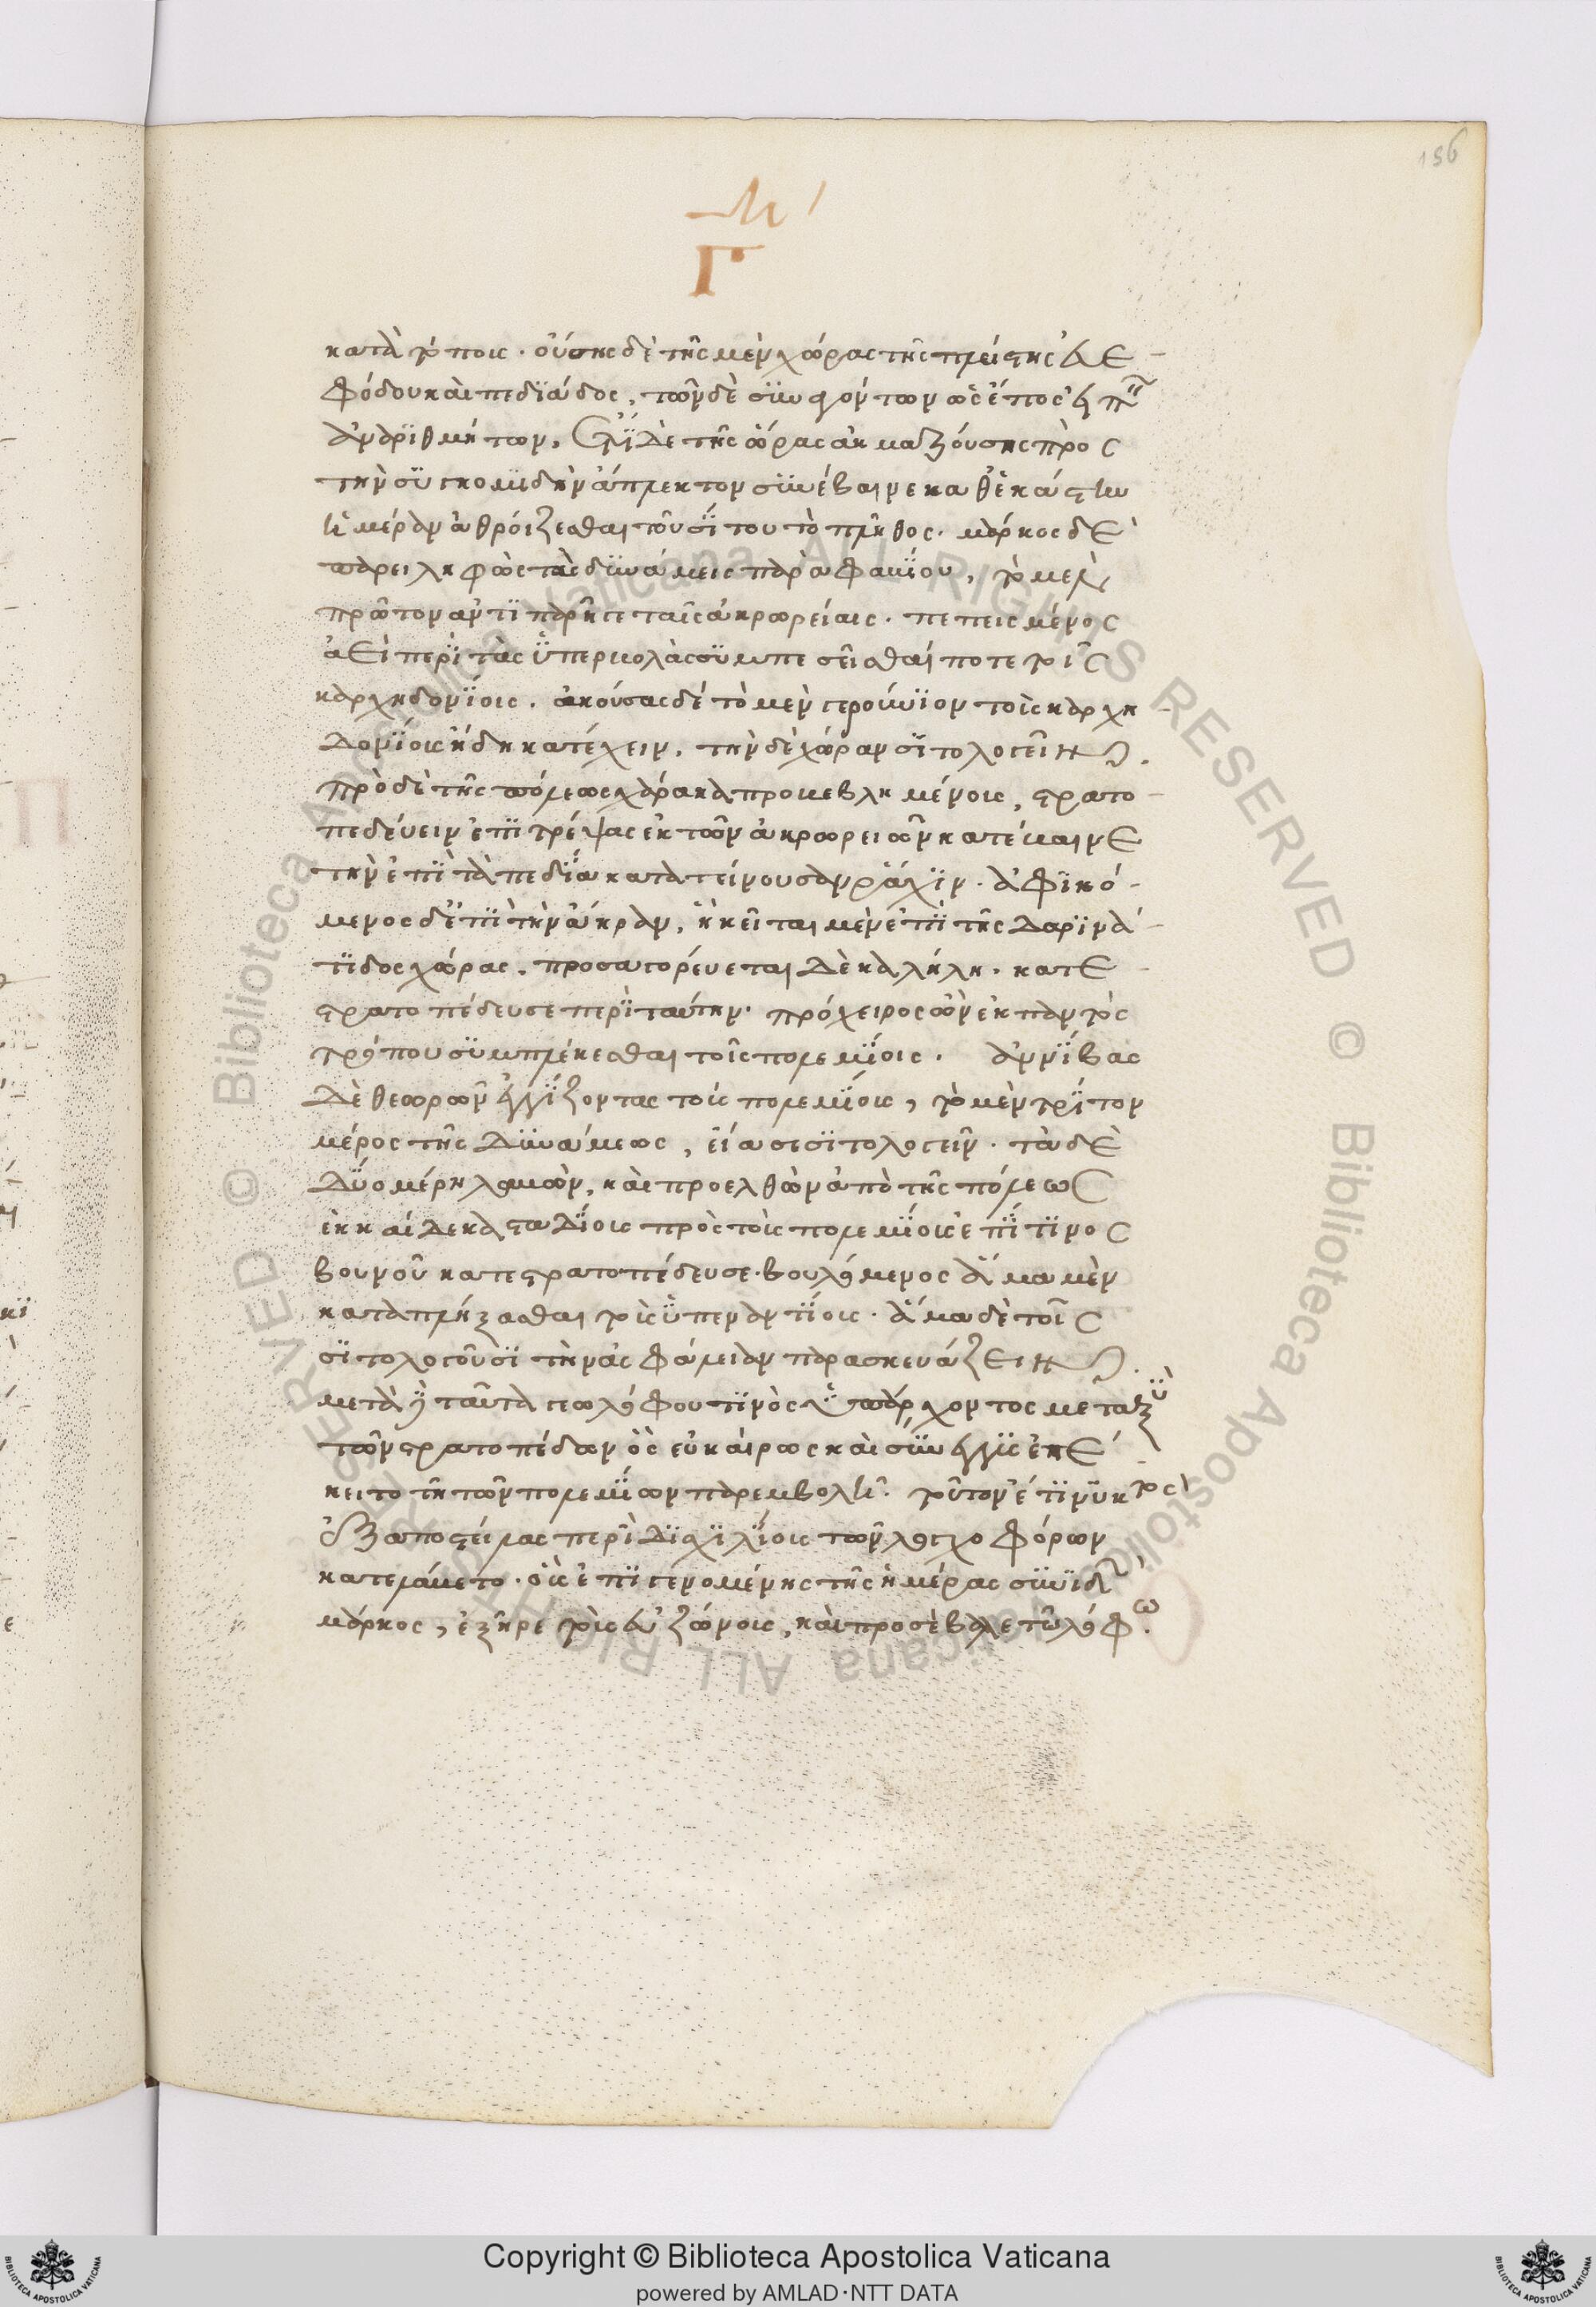 156
Γ
κατὰ τόπους. οὔσης δὲ τῆς μὲν χώρας τῆς πλείστης εὐε-
φόδου καὶ πεδιάδος, τῶν δὲ συναγόντων ὡς ἔπος εἰπεῖν
ἀναριθμήτων, ἔτι δὲ τῆς ὥρας ἀκμαζούσης πρὸς
τὴν συγκομιδὴν ἄπλεκτον συνέβαινε καθ' ἑκάστην
ἡμέραν ἀθροίζεσθαι τοῦ σίτου τὸ πλῆθος. μάρκος δὲ
παρειληφὼς τὰς δυνάμεις παρὰ φαβίου, τὸ μὲν
πρῶτον ἀντιπαρῆγε ταῖς ἀκρωρείαις. πεπεισμένος
ἀεὶ περὶ τὰς ὑπερβολὰς συμπεσεῖσθαί ποτε τοῖς
καρχηδονίοις. ἀκούσας δὲ τὸ μὲν γερούνιον τοὺς καρχη-
δονίους ἤδη κατέχειν, τὴν δὲ χώραν σιτολογεῖν.
πρὸ δὲ τῆς πόλεως χάρακα προβεβλημένους, στρατο-
πεδεύειν ἐπιτρέψας ἐκ τῶν ἀκρωρειῶν κατέβαινε
τὴν ἐπὶ τὰ πεδία κατατείνουσαν ῥάχιν. ἀφικό-
μενος δ' ἐπὶ τὴν ἄκραν, ἣ κεῖται μὲν ἐπὶ τῆς λαρινά-
τιδος χώρας, προσαγορεύεται δὲ καλήλη. κατε-
στρατοπέδευσε περὶ ταύτην. πρόχειρος ὢν ἐκ παντὸς
τρόπου συμπλέκεσθαι τοῖς πολεμίοις. ἀννίβας
δὲ θεωρῶν ἐγγίζοντας τοὺς πολεμίους, τὸ μὲν τρίτον
μέρος τῆς δυνάμεως, εἴασε σιτολογεῖν. τὰ δὲ
δύο μέρη λαβὼν, καὶ προελθὼν ἀπὸ τῆς πόλεως
ἑκκαίδεκα σταδίους πρὸς τοὺς πολεμίους ἐπί τινος
βουνοῦ κατεστρατοπέδευσε. βουλόμενος ἅμα μὲν
καταπλήξασθαι τοὺς ὑπεναντίους. ἅμα δὲ τοῖς
σιτολογοῦσι τὴν ἀσφάλειαν παρασκευάζειν.
μετὰ δὲ ταῦτα γεωλόφου τινὸς ὑπάρχοντος μεταξὺ
τῶν στρατοπέδων ὃς εὐκαίρως καὶ σύνεγγυς ἐπέ-
κειτο τῇ τῶν πολεμίων παρεμβολῇ. τοῦτον ἔτι νυκτὸς
ἐξαποστείλας περὶ δισχιλίους τῶν λογχοφόρων
κατελάβετο. οὓς ἐπιγενομένης τῆς ἡμέρας συνιδὼν
μάρκος, ἐξῆγε τοὺς εὐζώνους, καὶ προσέβαλε τῷ λόφῳ.
Copyright © Biblioteca Apostolica Vaticana
powered by AMLAD·NTT DATA